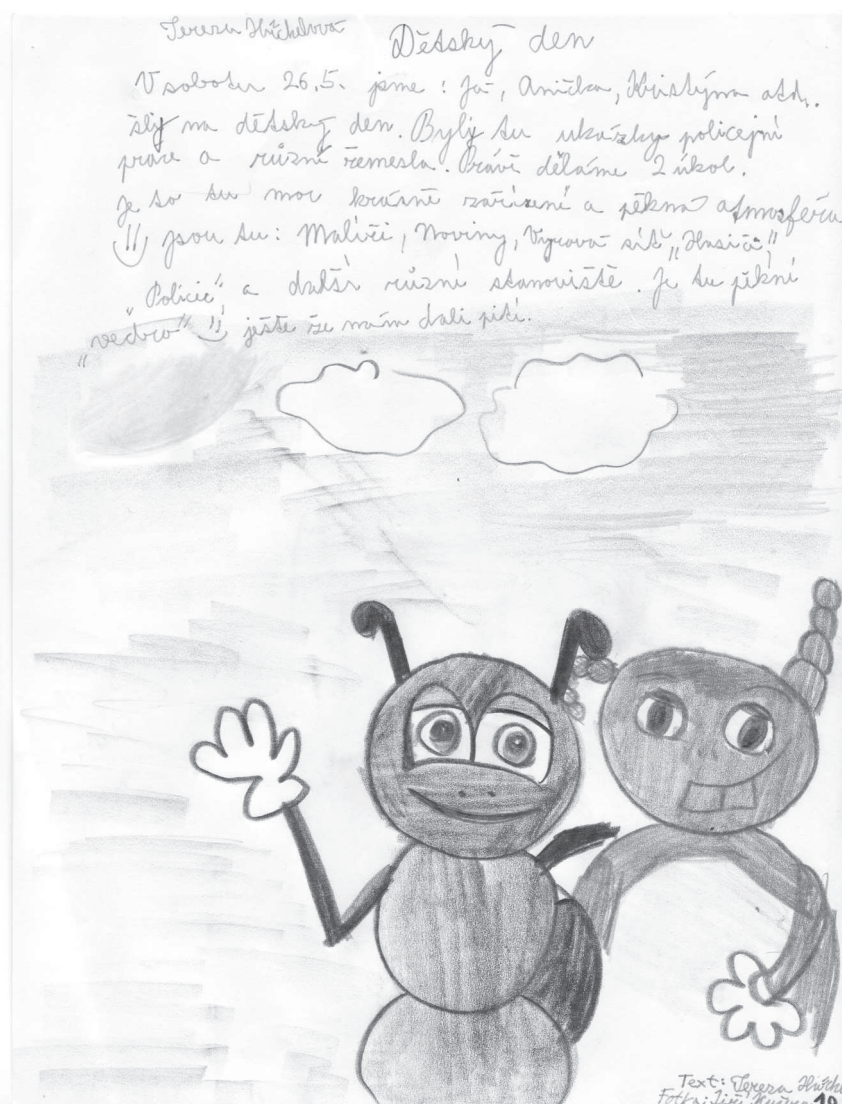 Tereza
Dětský den
V sobotu 26.5. jsme : Já, Anička, Kristýna atd.
šly na dětský den. Byly tu ukázky policejní
práce a různí řemesla. Právě děláme 2 úkol.
Je to tu moc krásně zařízení a pěkná atmosféra
jsou tu: Malíři, Noviny, Vyrová síť „Hasiči"
„Policie" a další různí stanoviště. Je tu pěkní
„vedro" ještě že nám dali pití.
Text: Tereza
Fotka: Jiří
10